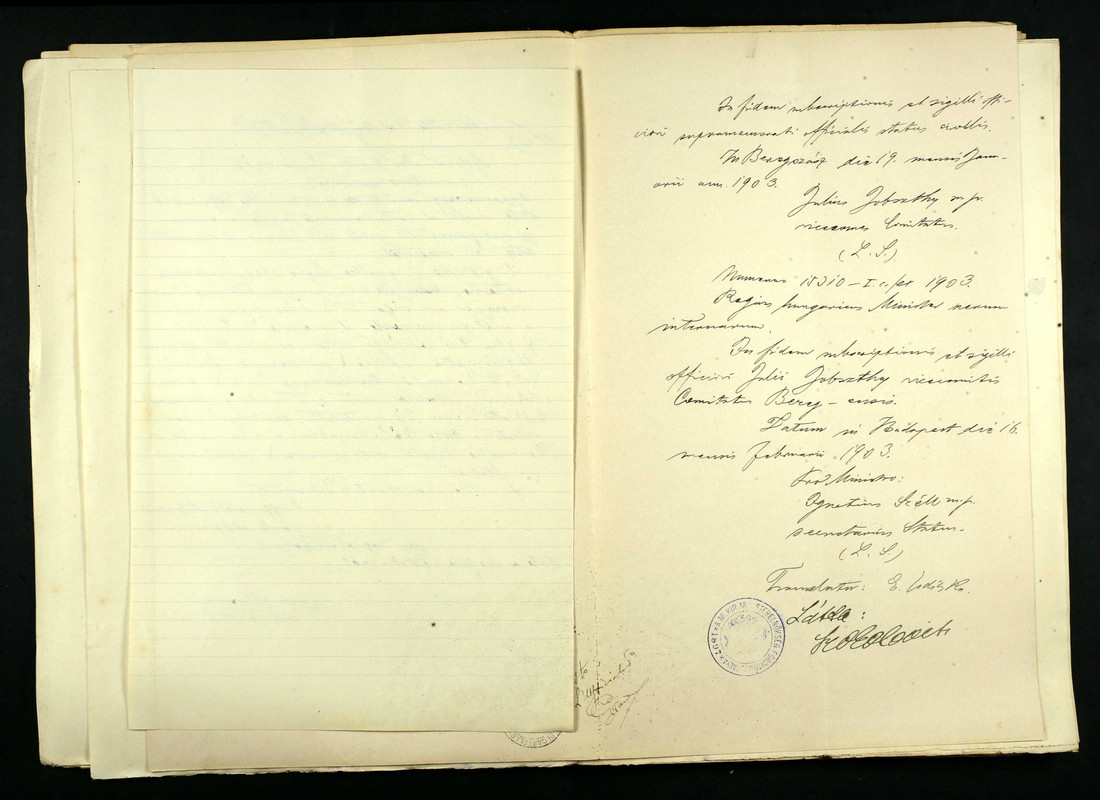 In fidem subscriptionis et sigilli offi-
cirii supramemorati officialis status civilis.
In Beregszász die 19. mensis Janu-
arii ann. 1903.
Julius Jobszthy m. p.
vicecomes Comitatus.
(L. S.)
Numerus 15310 – I. c. ex 1903.
Regius hungaricus Minister rerum
internarum.
In fidem subscriptionis et sigilli
officiosi Julii Jobszthy vicecomitis
Comitatus Bereg – ensis.
Datum in Budapest die 16.
mensis februarii 1903.
Pro Ministro:
Ignatius Széll m. p.
secretarius Status.
(L. S.)
Translator: E.
Látta: